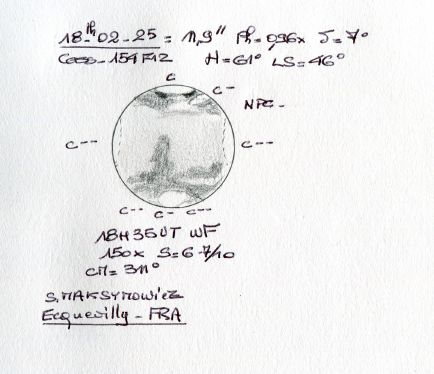 18-th 02-25 = 11,9" Ph=0,96x J=7°
Cass-154 F12 H=61° LS=46°
C
C-
NPC-
C-- C---
C-- C- C---
18H35UT WF
150x S=6-7/10
CM= 311°
S.MAKSYMOWICZ
Ecquevilly - FRA